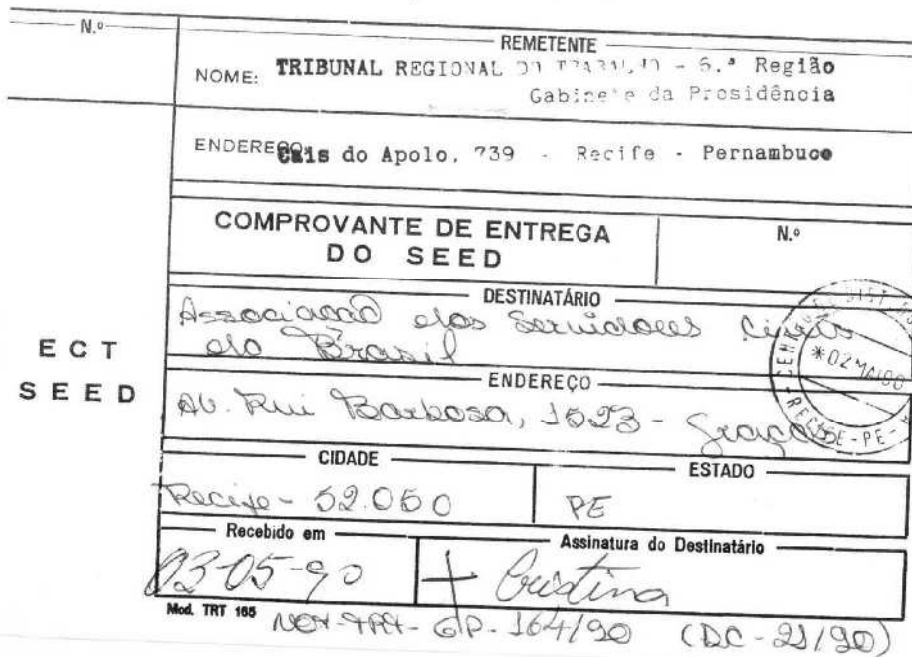 N.º
REMETENTE
NOME: TRIBUNAL REGIONAL DO TRABALHO - 6.ª Região
Gabinete da Presidência
ENDEREÇO: Cais do Apolo, 739 - Recife - Pernambuco
COMPROVANTE DE ENTREGA
DO SEED
N.º
ECT
SEED
DESTINATÁRIO
Associação dos Servidores Civis
do Brasil
ENDEREÇO
Av. Rui Barbosa, 1523 - Graças
*02 MAI 90
RECIFE - PE -
CIDADE
Recife - 52.050
ESTADO
PE
Recebido em
03-05-90
Assinatura do Destinatário
Cristina
Mod. TRT 165
NOT-TRT-GP-164/90 (DC-21/90)